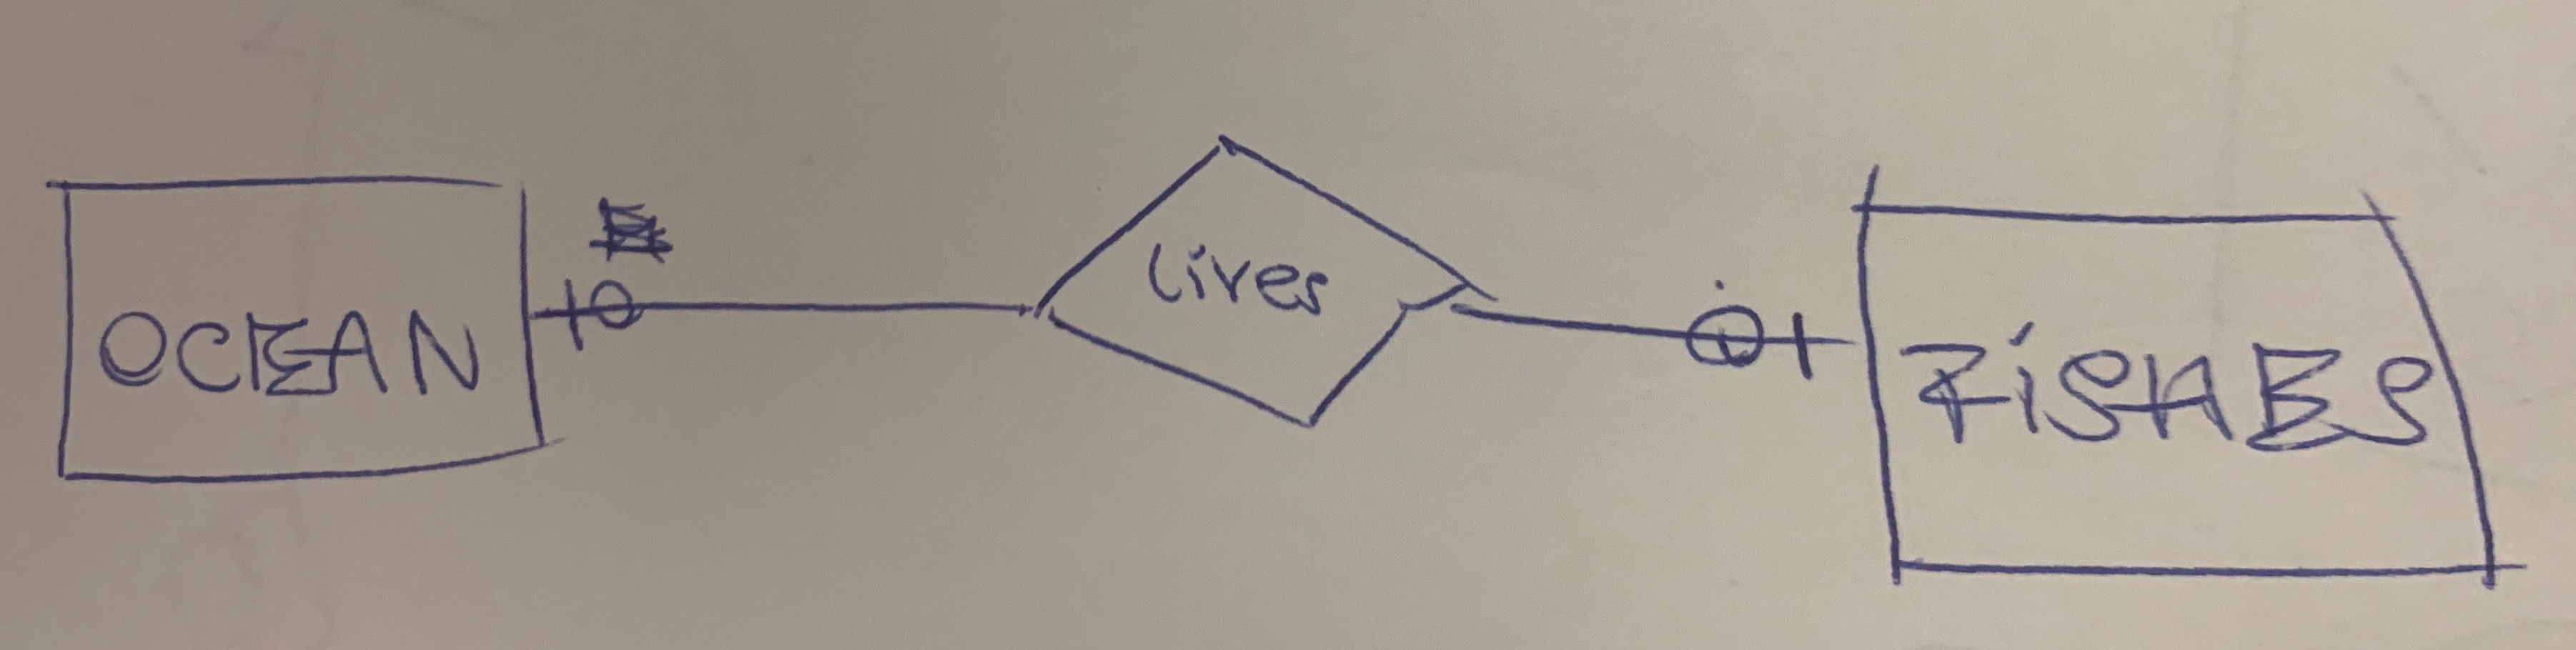 OCEAN
lives
FISHES